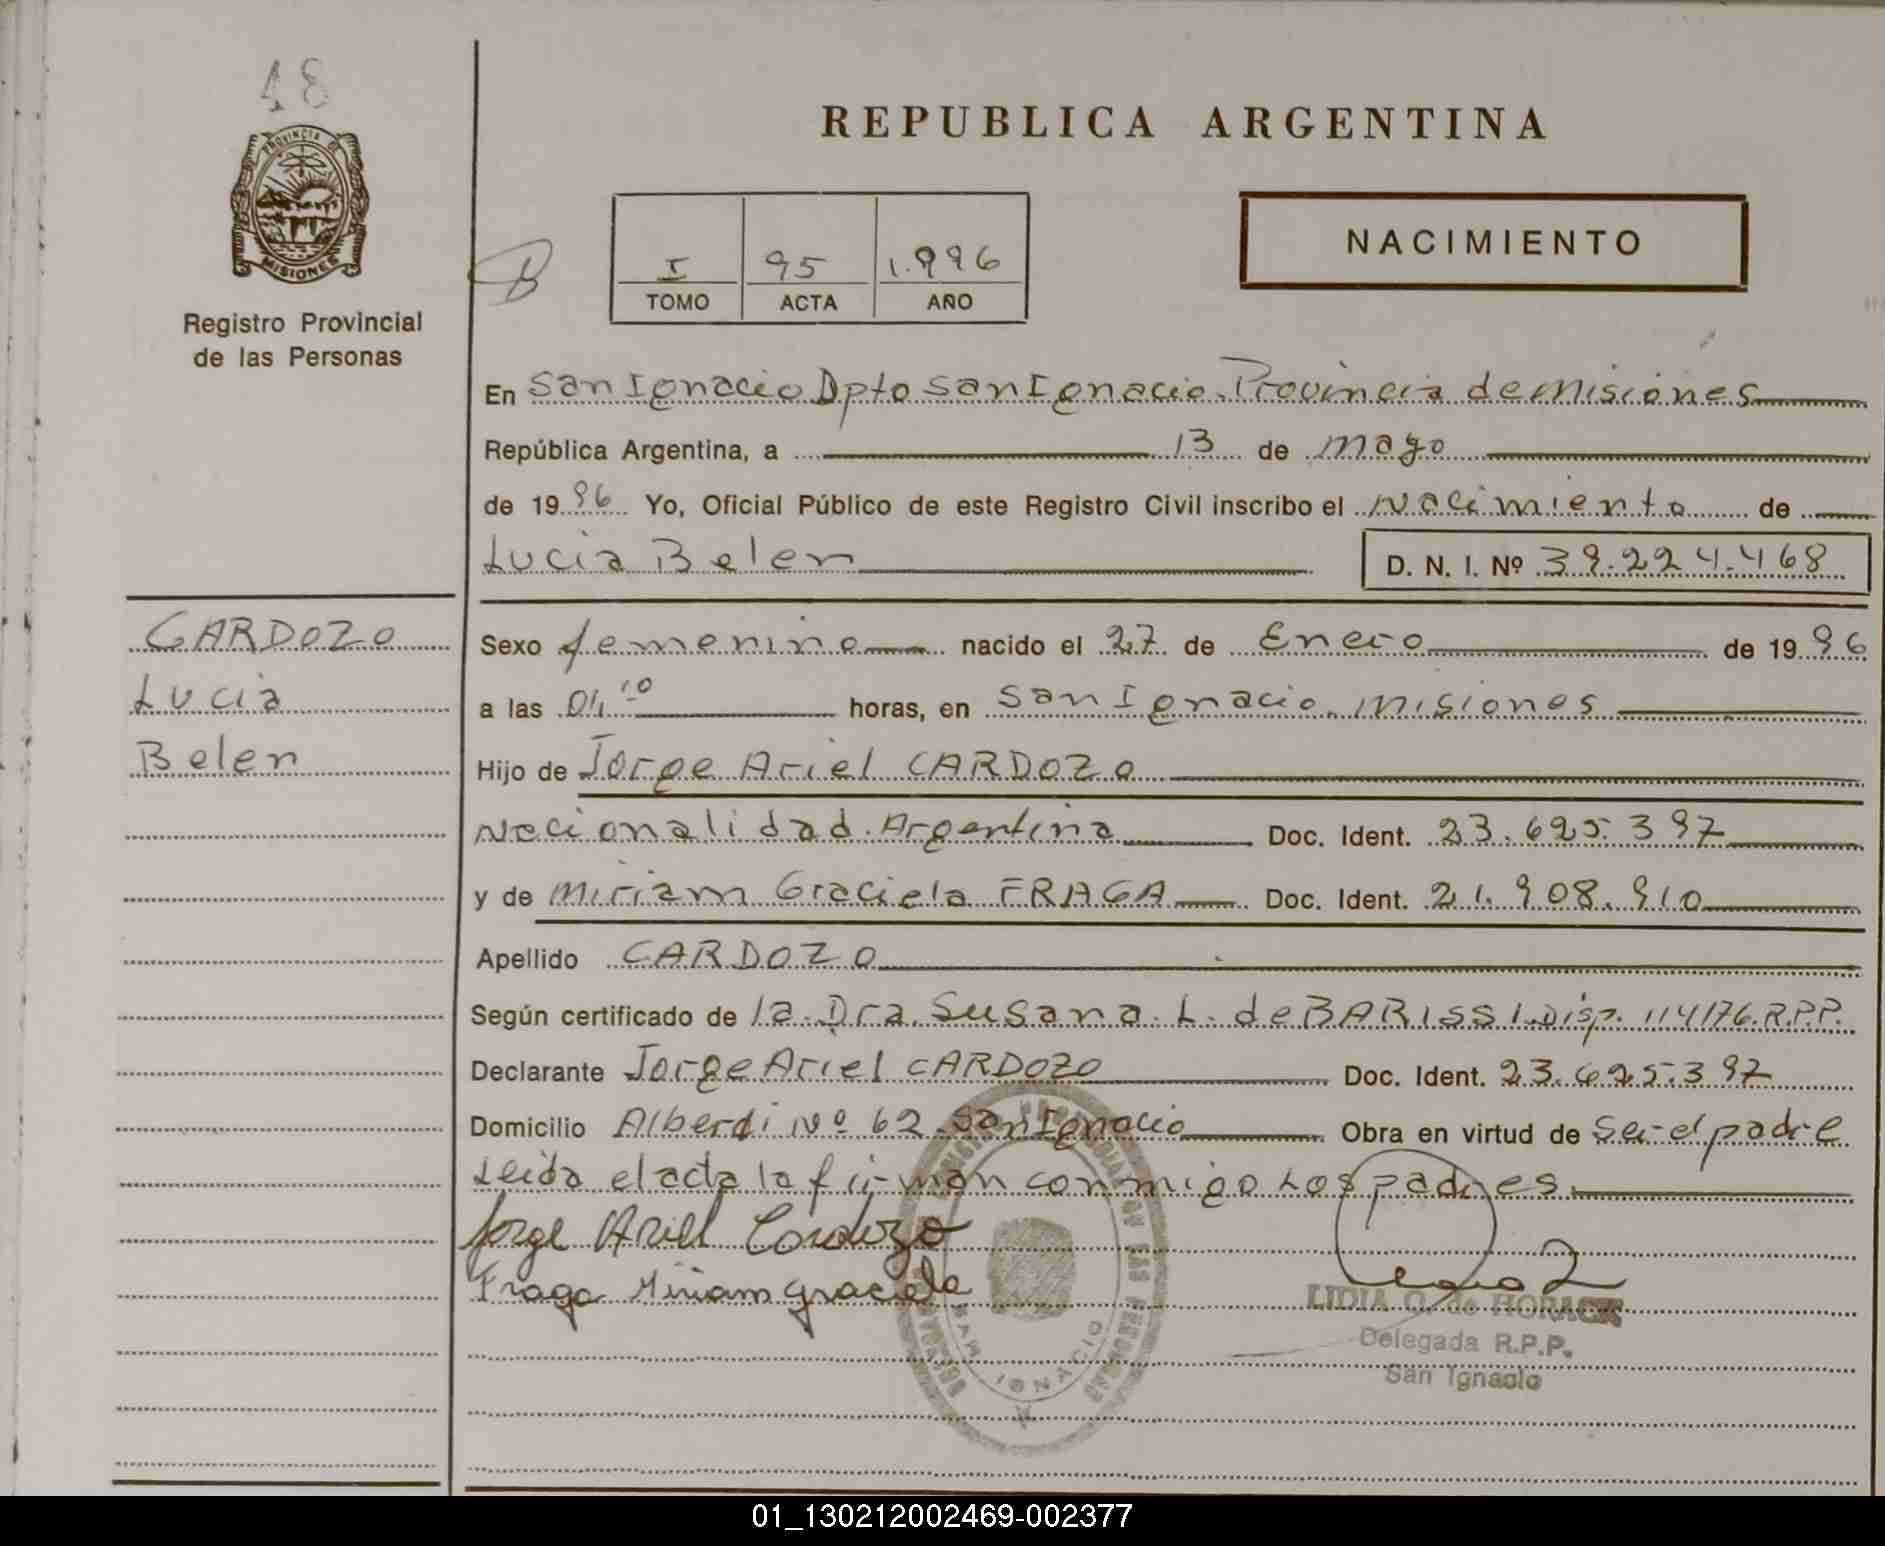 48
PROVINCIA DE
MISIONES
Registro Provincial
de las Personas
REPUBLICA ARGENTINA
I 95 1.996
TOMO ACTA AÑO
NACIMIENTO
En San Ignacio Dpto San Ignacio. Provincia de Misiones
República Argentina, a 13 de mayo
de 1996 Yo, Oficial Público de este Registro Civil inscribo el nacimiento de
Lucia Belen D. N. I. Nº 39.224.468
CARDOZO
Lucia
Belen
Sexo femenino nacido el 27 de Enero de 1996
a las 04 10 horas, en San Ignacio. Misiones
Hijo de Jorge Ariel CARDOZO
Nacionalidad Argentina Doc. Ident. 23.625.397
y de Miriam Graciela FRAGA Doc. Ident. 21.908.910
Apellido CARDOZO
Según certificado de la Dra. Susana L. de BARISSI. Disp. 114/76.R.P.P.
Declarante Jorge Ariel CARDOZO Doc. Ident. 23.625.397
Domicilio Alberdi Nº 62. San Ignacio Obra en virtud de ser el padre
Leida el acta la firman conmigo Los padres.
Jorge Ariel Cardozo
Fraga Miriam Graciela
SAN IGNACIO
LIDIA O. de HORACK
Delegada R.P.P.
San Ignacio
01_130212002469-002377